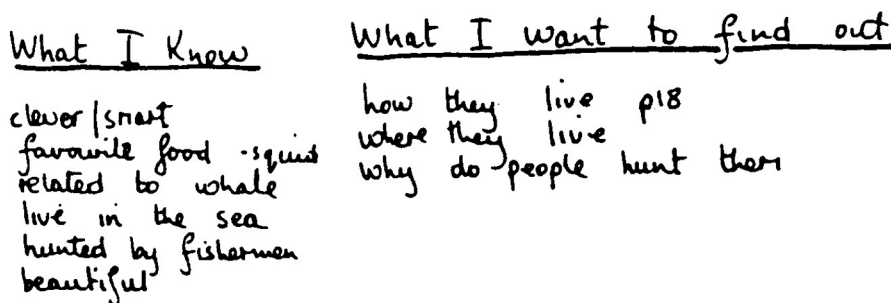 What I Know
clever/smart
favourite food - squid
related to whale
live in the sea
hunted by fishermen
beautiful
What I want to find out
how they live p18
where they live
why do people hunt them